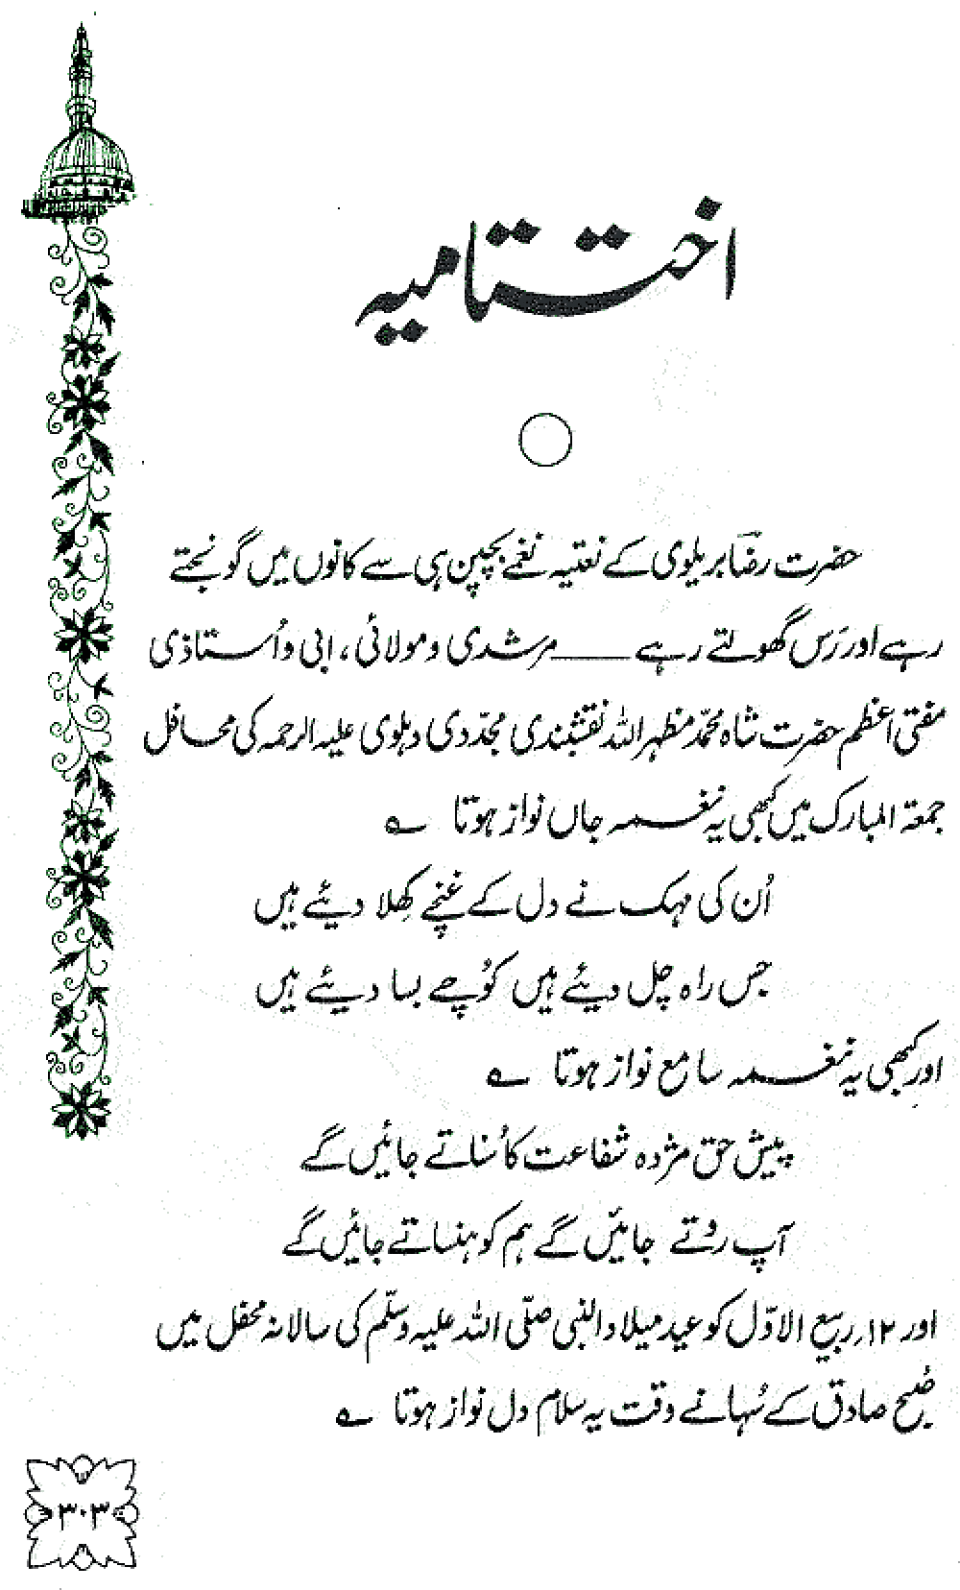 اختتامیہ
حضرت رضاؔ بریلوی کے نعتیہ نغمے بچپن ہی سے کانوں میں گونجتے
رہے اور رَس گھولتے رہے ــــــ مرشدی و مولائی، ابی و اُستاذی
مفتی اعظم حضرت شاہ محمّد مظہر اللہ نقشبندی مجدّدی دہلوی علیہ الرحمہ کی محافل
جمعۃ المبارک میں کبھی یہ نغمہ جاں نواز ہوتا ؎
اُن کی مہک نے دل کے غنچے کِھلا دیئے ہیں
جس راہ چل دیئے ہیں کوُچے بسا دیئے ہیں
اور کبھی یہ نغمہ سامع نواز ہوتا ؎
پیش حق مژدہ شفاعت کا سُناتے جائیں گے
آپ روتے جائیں گے ہم کو ہنساتے جائیں گے
اور ۱۲؍ ربیع الاوّل کو عید میلاد النبی صلّی اللہ علیہ وسلّم کی سالانہ محفل میں
صُبح صادق کے سُہانے وقت یہ سلام دل نواز ہوتا ؎
۳۰۳